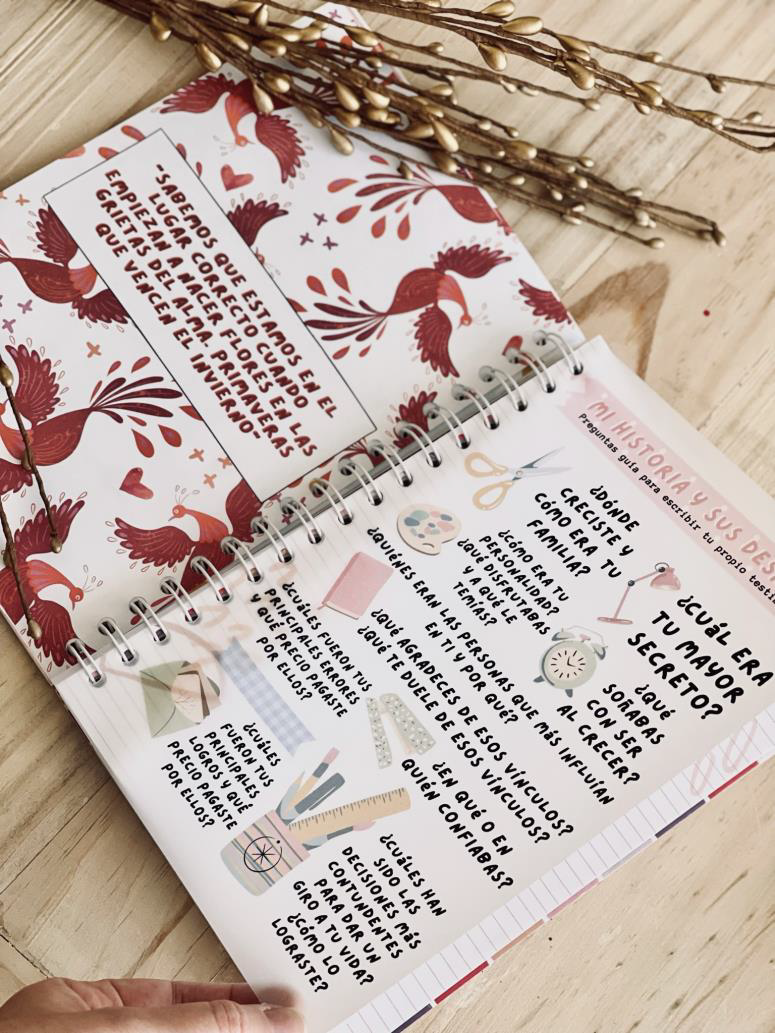 "SABEMOS QUE ESTAMOS EN EL
LUGAR CORRECTO CUANDO
EMPIEZAN A NACER FLORES EN LAS
GRIETAS DEL ALMA. PRIMAVERAS
QUE VENCEN EL INVIERNO"
MI HISTORIA Y SUS
Preguntas guía para escribir tu propio
¿DÓNDE
CRECISTE Y
CÓMO ERA TU
FAMILIA?
¿CUÁL ERA
TU MAYOR
SECRETO?
¿CÓMO ERA TU
PERSONALIDAD?
¿QUÉ DISFRUTABAS
Y A QUÉ LE
TEMÍAS?
¿QUÉ
SOÑABAS
CON SER
AL CRECER?
¿QUIÉNES ERAN LAS PERSONAS QUE MÁS INFLUÍAN
EN TI Y POR QUÉ?
¿QUÉ AGRADECES DE ESOS VÍNCULOS?
¿QUÉ TE DUELE DE ESOS VÍNCULOS?
¿CUÁLES FUERON TUS
PRINCIPALES ERRORES
Y QUÉ PRECIO PAGASTE
POR ELLOS?
¿EN QUÉ O EN
QUIÉN CONFIABAS?
¿CUÁLES
FUERON TUS
PRINCIPALES
LOGROS Y QUÉ
PRECIO PAGASTE
POR ELLOS?
¿CUÁLES HAN
SIDO LAS
DECISIONES MÁS
CONTUNDENTES
PARA DAR UN
GIRO A TU VIDA?
¿CÓMO LO
LOGRASTE?